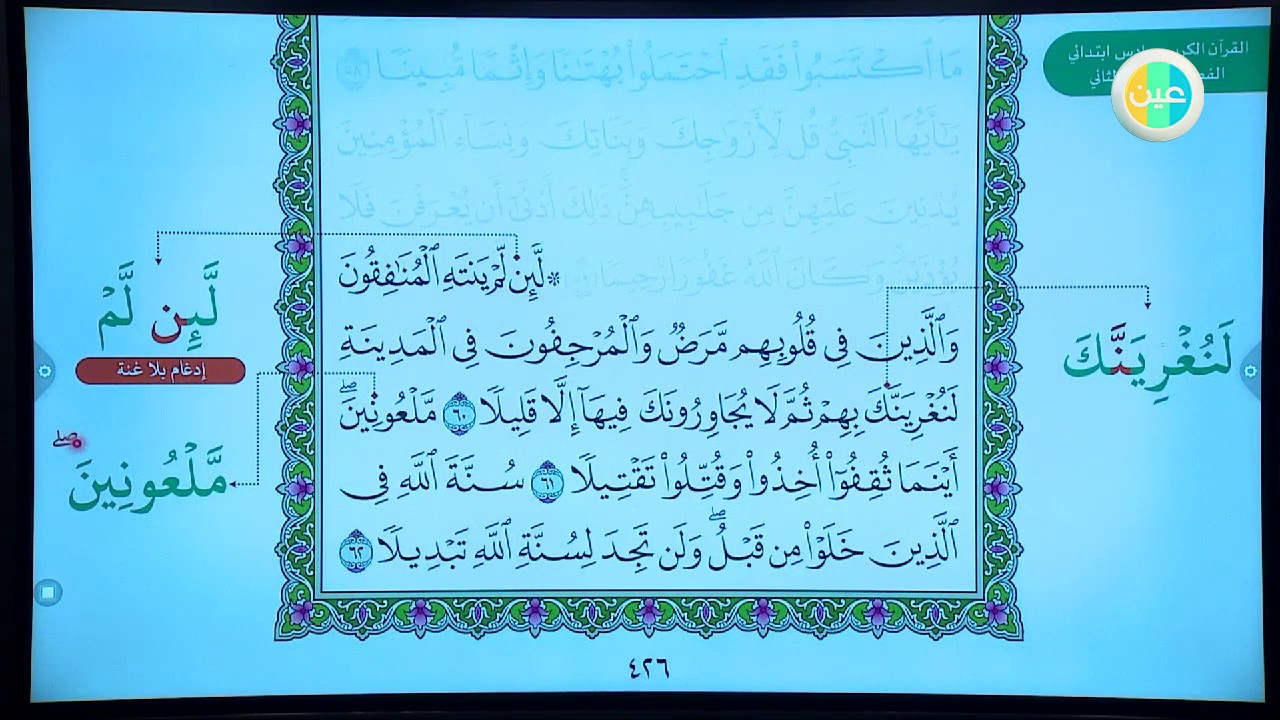 القرآن الكريم سادس ابتدائي
الفصل الثاني
عين
مَا ٱكْتَسَبُوا۟ فَقَدِ ٱحْتَمَلُوا۟ بُهْتَـٰنًا وَإِثْمًا مُّبِينًا ٥٨
يَـٰٓأَيُّهَا ٱلنَّبِىُّ قُل لِّأَزْوَٰجِكَ وَبَنَاتِكَ وَنِسَآءِ ٱلْمُؤْمِنِينَ
يُدْنِينَ عَلَيْهِنَّ مِن جَلَـٰبِيبِهِنَّ ۚ ذَٰلِكَ أَدْنَىٰٓ أَن يُعْرَفْنَ فَلَا
يُؤْذَيْنَ ۗ وَكَانَ ٱللَّهُ غَفُورًا رَّحِيمًا ۞ لَّئِن لَّمْ يَنتَهِ ٱلْمُنَـٰفِقُونَ
وَٱلَّذِينَ فِى قُلُوبِهِم مَّرَضٌ وَٱلْمُرْجِفُونَ فِى ٱلْمَدِينَةِ
لَنُغْرِيَنَّكَ بِهِمْ ثُمَّ لَا يُجَاوِرُونَكَ فِيهَآ إِلَّا قَلِيلًا ٦٠ مَّلْعُونِينَ ۖ
أَيْنَمَا ثُقِفُوٓا۟ أُخِذُوا۟ وَقُتِّلُوا۟ تَقْتِيلًا ٦١ سُنَّةَ ٱللَّهِ فِى
ٱلَّذِينَ خَلَوْا۟ مِن قَبْلُ ۖ وَلَن تَجِدَ لِسُنَّةِ ٱللَّهِ تَبْدِيلًا ٦٢
لَنُغْرِيَنَّكَ
لَّئِن لَّمْ
إدغام بلا غنة
مَّلْعُونِينَ ۖ
٤٢٦